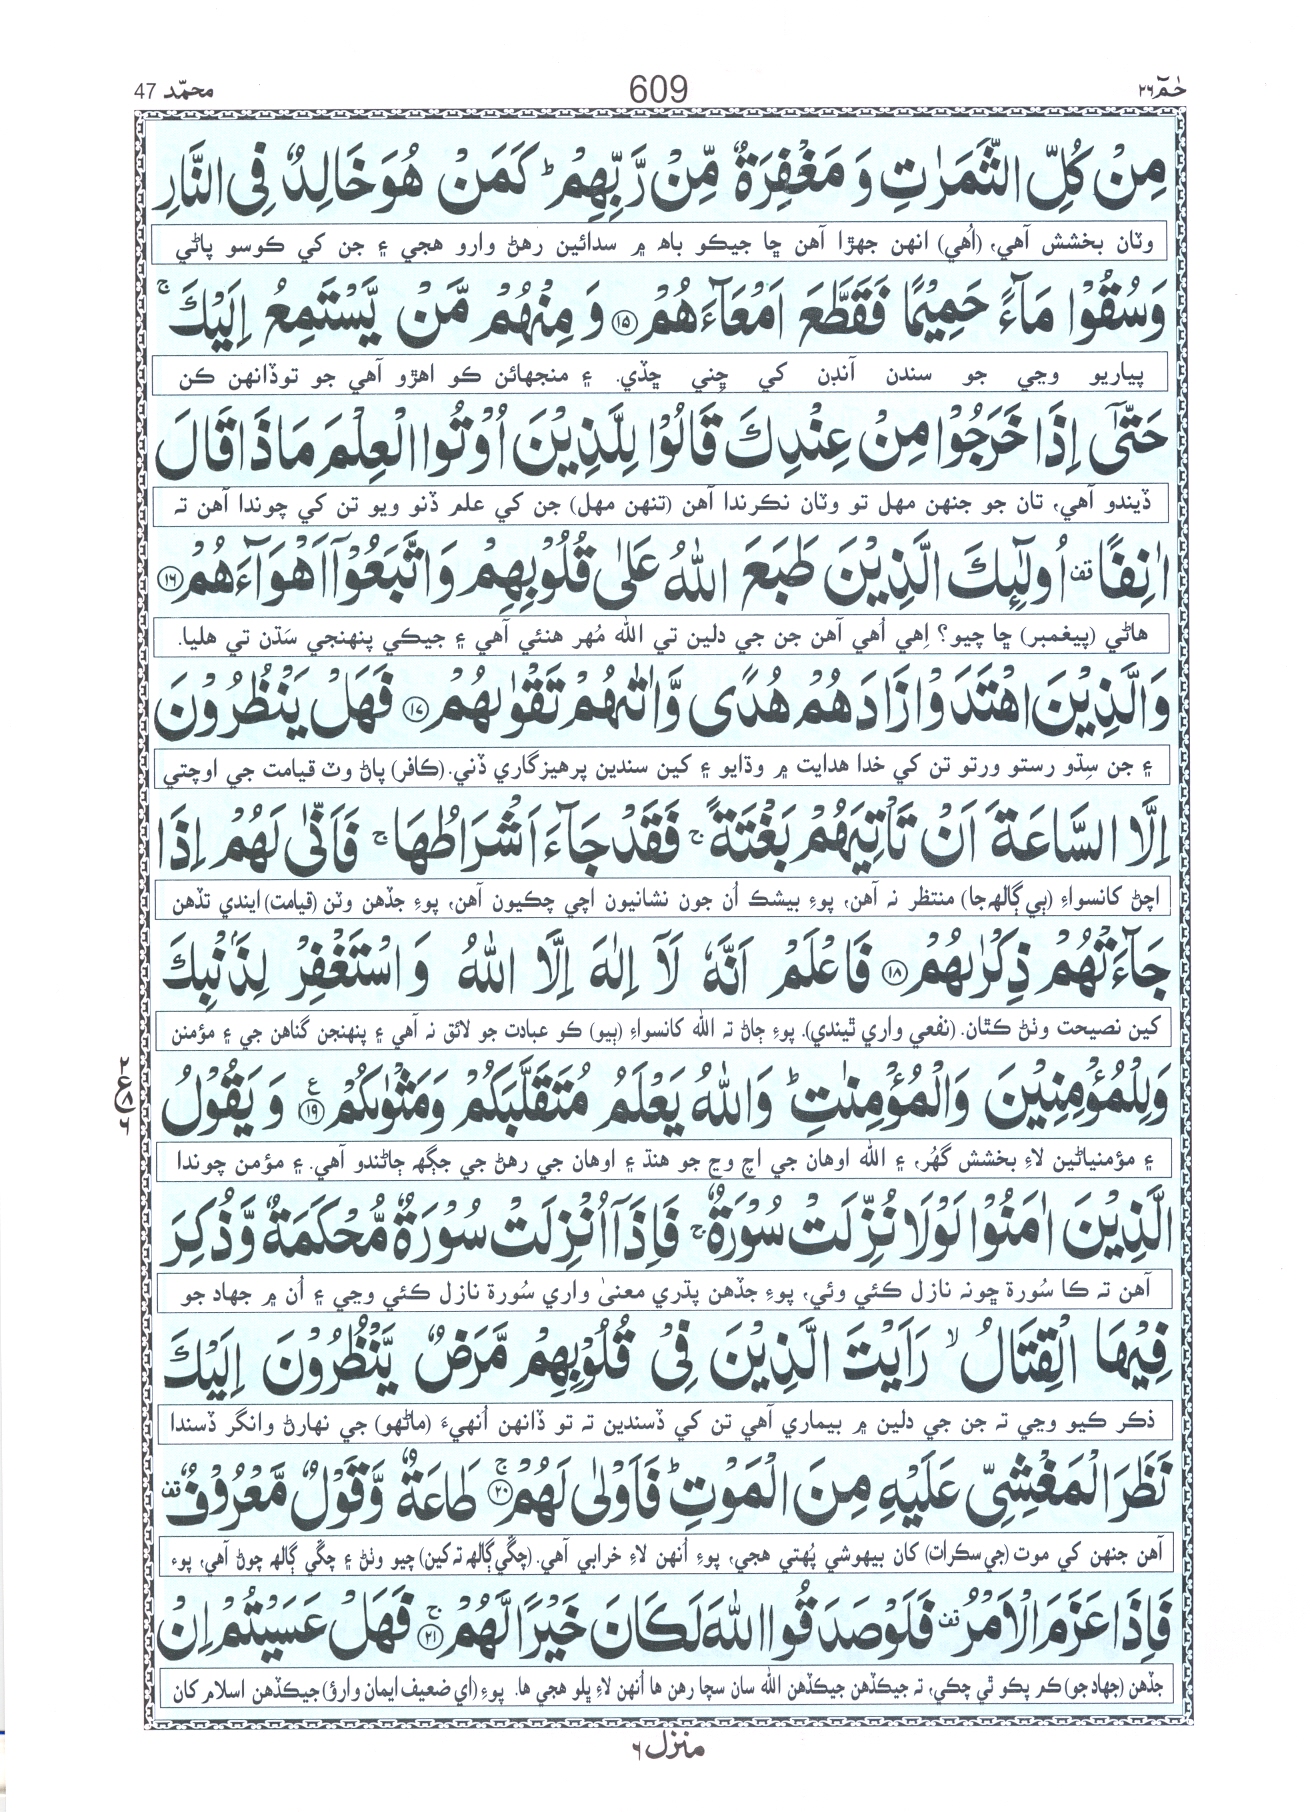 حٰمٓ ۲۶
609
محمّد 47
مِنْ كُلِّ الثَّمَرٰتِ وَ مَغْفِرَةٌ مِّنْ رَّبِّهِمْ ؕ كَمَنْ هُوَ خَالِدٌ فِی النَّارِ
وٽان بخشش آهي، (اُهي) انهن جهڙا آهن ڇا جيڪو باھ ۾ سدائين رهڻ وارو هجي ۽ جن کي ڪوسو پاڻي
وَسُقُوْا مَآءً حَمِیْمًا فَقَطَّعَ اَمْعَآءَهُمْ ﴿۱۵﴾ وَ مِنْهُمْ مَّنْ یَّسْتَمِعُ اِلَیْكَ ۚ
پياريو وڃي جو سندن آنڊن کي ڇِني ڇڏي. ۽ منجهائن ڪو اهڙو آهي جو توڏانهن ڪن
حَتّٰۤی اِذَا خَرَجُوْا مِنْ عِنْدِكَ قَالُوْا لِلَّذِیْنَ اُوْتُوا الْعِلْمَ مَاذَا قَالَ
ڏيندو آهي، تان جو جنهن مهل تو وٽان نڪرندا آهن (تنهن مهل) جن کي علم ڏنو ويو تن کي چوندا آهن تہ
اٰنِفًا ۫ اُولٰٓئِكَ الَّذِیْنَ طَبَعَ اللّٰهُ عَلٰی قُلُوْبِهِمْ وَ اتَّبَعُوْۤا اَهْوَآءَهُمْ ﴿۱۶﴾
هاڻي (پيغمبر) ڇا چيو؟ اِهي اُهي آهن جن جي دلين تي الله مُهر هنئي آهي ۽ جيڪي پنهنجي سَڌن تي هليا.
وَالَّذِیْنَ اهْتَدَوْا زَادَهُمْ هُدًی وَّاٰتٰىهُمْ تَقْوٰىهُمْ ﴿۱۷﴾ فَهَلْ یَنْظُرُوْنَ
۽ جن سِڌو رستو ورتو تن کي خدا هدايت ۾ وڌايو ۽ کين سندين پرهيزگاري ڏني. (ڪافر) پاڻ وٽ قيامت جي اوچتي
اِلَّا السَّاعَةَ اَنْ تَاْتِیَهُمْ بَغْتَةً ۚ فَقَدْ جَآءَ اَشْرَاطُهَا ۚ فَاَنّٰی لَهُمْ اِذَا
اچڻ کانسواءِ (ٻي ڳالھ جا) منتظر نہ آهن، پوءِ بيشڪ اُن جون نشانيون اچي چڪيون آهن، پوءِ جڏهن وٽن (قيامت) ايندي تڏهن
جَآءَتْهُمْ ذِكْرٰىهُمْ ﴿۱۸﴾ فَاعْلَمْ اَنَّهٗ لَاۤ اِلٰهَ اِلَّا اللّٰهُ وَ اسْتَغْفِرْ لِذَنْۢبِكَ
کين نصيحت وٺڻ ڪٿان. (نفعي واري ٿيندي). پوءِ ڄاڻ تہ الله کانسواءِ (ٻيو) ڪو عبادت جو لائق نہ آهي ۽ پنهنجن گناهن جي ۽ مؤمنن
وَلِلْمُؤْمِنِیْنَ وَالْمُؤْمِنٰتِ ؕ وَاللّٰهُ یَعْلَمُ مُتَقَلَّبَكُمْ وَمَثْوٰىكُمْ ﴿۱۹﴾ ع وَ یَقُوْلُ
۲ ع ۸ ۶
۽ مؤمنياڻين لاءِ بخشش گهُر، ۽ الله اوهان جي اچ وڃ جو هنڌ ۽ اوهان جي رهڻ جي جڳھ ڄاڻندو آهي. ۽ مؤمن چوندا
الَّذِیْنَ اٰمَنُوْا لَوْلَا نُزِّلَتْ سُوْرَةٌ ۚ فَاِذَاۤ اُنْزِلَتْ سُوْرَةٌ مُّحْكَمَةٌ وَّذُكِرَ
آهن تہ ڪا سُورة ڇونہ نازل ڪئي وئي، پوءِ جڏهن پڌري معنيٰ واري سُورة نازل ڪئي وڃي ۽ اُن ۾ جهاد جو
فِیْهَا الْقِتَالُ ۙ رَاَیْتَ الَّذِیْنَ فِیْ قُلُوْبِهِمْ مَّرَضٌ یَّنْظُرُوْنَ اِلَیْكَ
ذڪر ڪيو وڃي تہ جن جي دلين ۾ بيماري آهي تن کي ڏسندين تہ تو ڏانهن اُنهيءَ (ماڻهو) جي نهارڻ وانگر ڏسندا
نَظَرَ الْمَغْشِیِّ عَلَیْهِ مِنَ الْمَوْتِ ؕ فَاَوْلٰی لَهُمْ ﴿۲۰﴾ۚ طَاعَةٌ وَّقَوْلٌ مَّعْرُوْفٌ ۫
آهن جنهن کي موت (جي سڪرات) کان بيهوشي پُهتي هجي، پوءِ اُنهن لاءِ خرابي آهي. (چڱي ڳالھ تہ کين) چيو وٺڻ ۽ چڱي ڳالھ چوڻ آهي، پوءِ
فَاِذَا عَزَمَ الْاَمْرُ ۫ فَلَوْ صَدَقُوا اللّٰهَ لَكَانَ خَیْرًا لَّهُمْ ﴿۲۱﴾ۚ فَهَلْ عَسَیْتُمْ اِنْ
جڏهن (جهاد جو) ڪم پڪو ٿي چڪي، تہ جيڪڏهن جيڪڏهن الله سان سچا رهن ها اُنهن لاءِ ڀلو هجي ها. پوءِ (اي ضعيف ايمان وارؤ) جيڪڏهن اسلام کان
منزل ۶